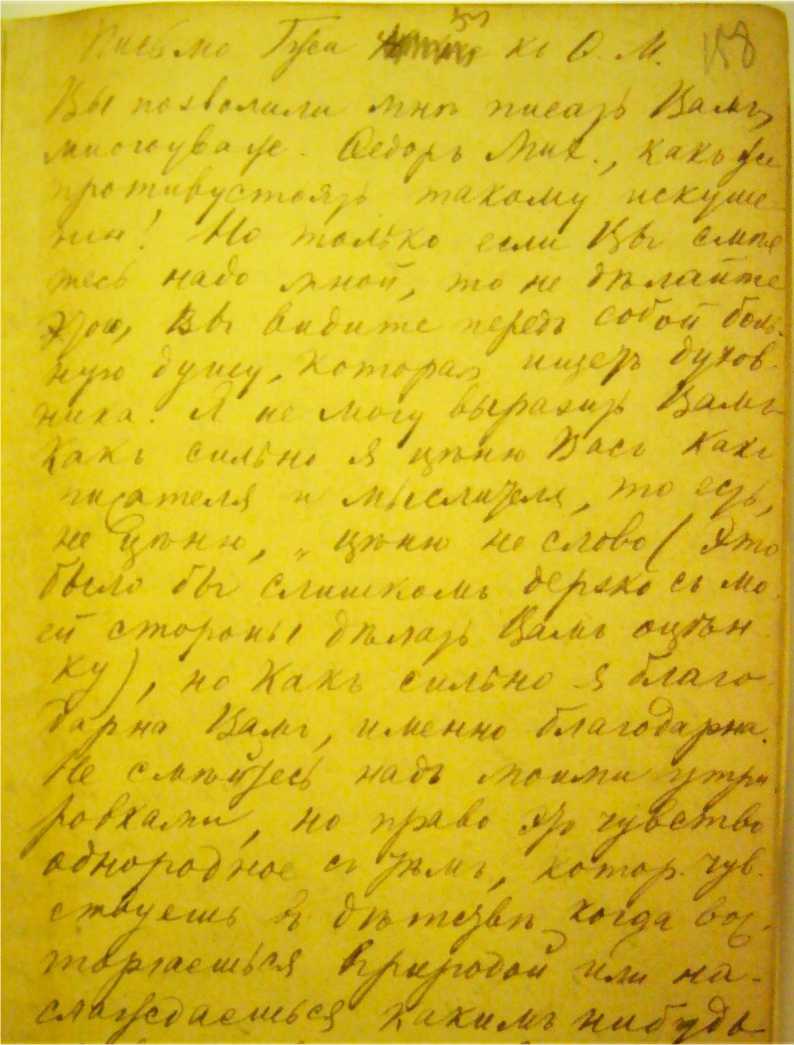 Письмо Гуси къ Ѳ. М. 158
Вы позволили мнѣ писать Вамъ,
многоуваж. Ѳедоръ Мих., какъ же
противустоять такому искуше-
нію! Но только если Вы смѣе
тесь надо мной, то не дѣлайте
этого, Вы видите передъ собой боль-
ную душу, которая ищетъ духов-
ника. Я не могу выразить Вамъ
какъ сильно я цѣню Васъ какъ
писателя и мыслителя, то есть,
не цѣню, „цѣню не слово (это
было бы слишкомъ дерзко съ мо
ей стороны дѣлать Вамъ оцѣн
ку), но какъ сильно я благо-
дарна Вамъ, именно благодарна.
Не смѣйтесь надъ моими утри
ровками, но право это чувство
однородное съ тѣмъ, котор. чув-
ствуешь въ дѣтствѣ, когда вос-
торгаешься природой или на-
слаждаешься какимъ нибудь